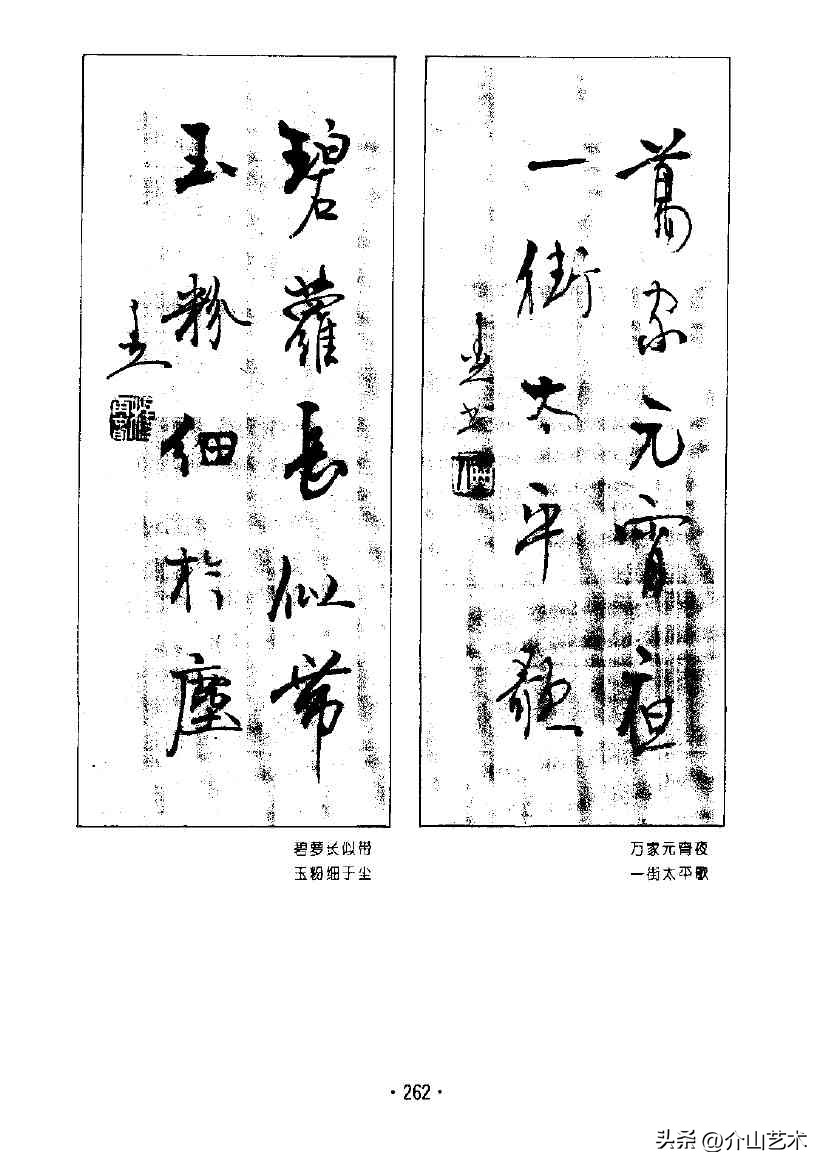 萬家元宵夜
一街太平歌
碧蘿長似帶
玉粉細於塵
万家元宵夜
一街太平歌
碧萝长似带
玉粉细于尘
· 262 ·
头条 @介山艺术